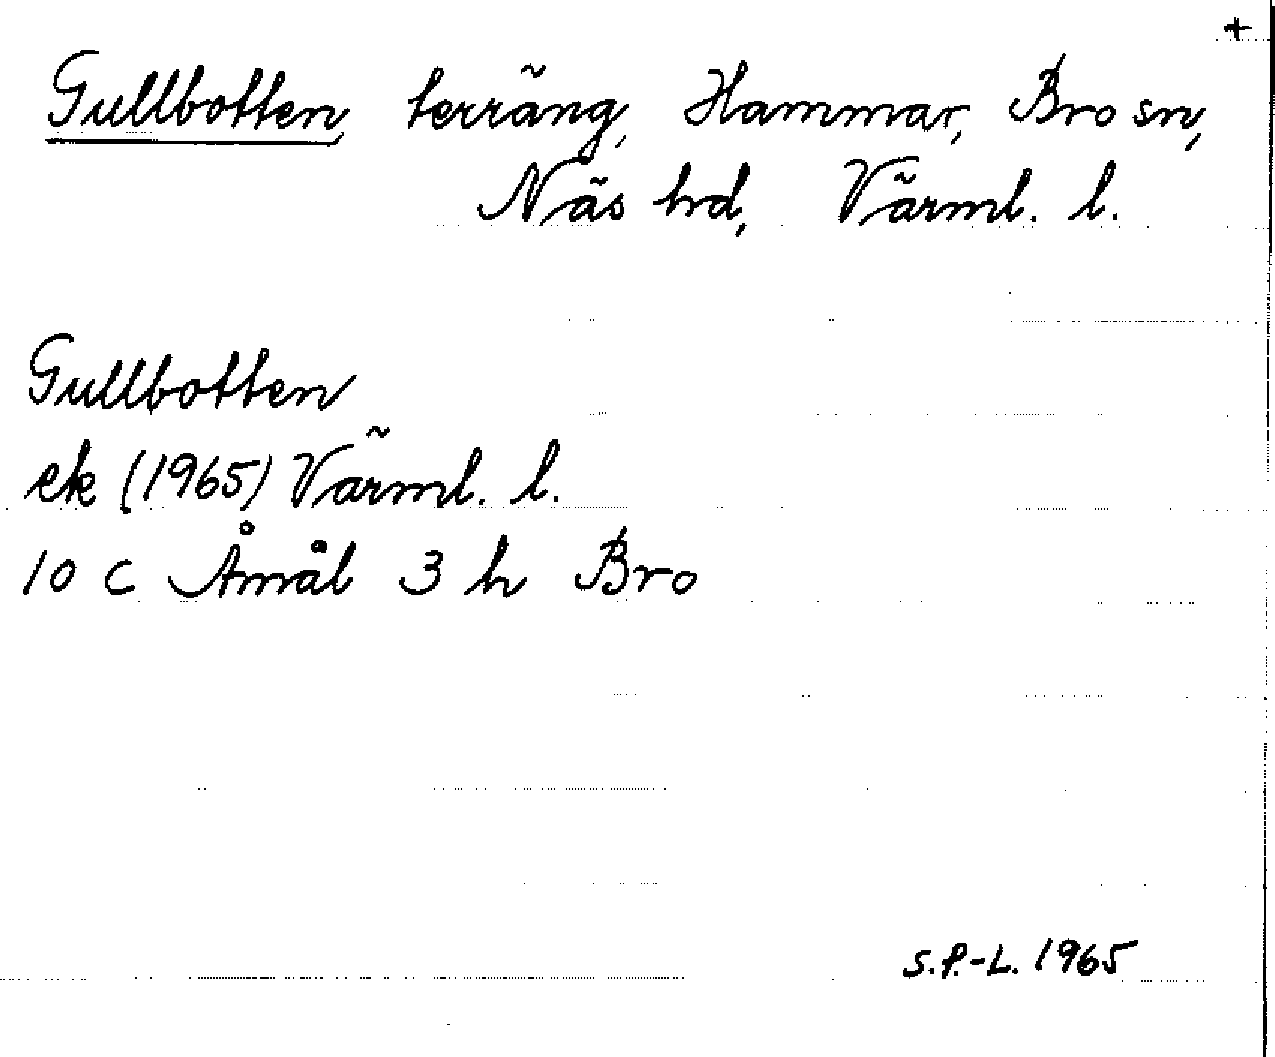 +
Gullbotten, terräng, Hammar, Bro sn,
Näs hd, Värml. l.
Gullbotten
ek (1965) Värml. l.
10 C Åmål 3 h Bro
S.P.-L. 1965